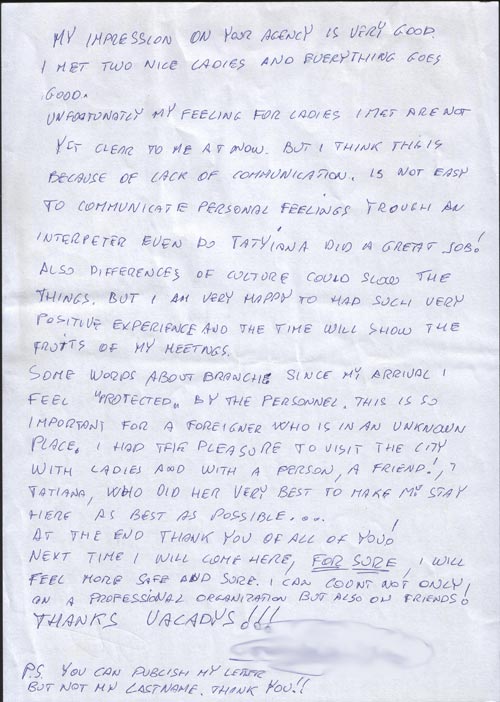 MY IMPRESSION ON YOUR AGENCY IS VERY GOOD.
I MET TWO NICE LADIES AND EVERYTHING GOES
GOOD.
UNFORTUNATLY MY FEELING FOR LADIES I MET ARE NOT
YET CLEAR TO ME AT NOW. BUT I THINK THIS IS
BECAUSE OF LACK OF COMMUNICATION. IS NOT EASY
TO COMMUNICATE PERSONAL FEELINGS TROUGH AN
INTERPETER EVEN DO TATYIANA DID A GREAT JOB!
ALSO DIFFERENCES OF CULTURE COULD SLOW THE
THINGS. BUT I AM VERY HAPPY TO HAD SUCH VERY
POSITIVE EXPERIENCE AND THE TIME WILL SHOW THE
FRUITS OF MY MEETINGS.
SOME WORDS ABOUT BRANCHE SINCE MY ARRIVAL I
FEEL "PROTECTED" BY THE PERSONNEL. THIS IS SO
IMPORTANT FOR A FOREIGNER WHO IS IN AN UNKNOWN
PLACE. I HAD THE PLEASURE TO VISIT THE CITY
WITH LADIES AND WITH A PERSON, A FRIEND!,
TATIANA, WHO DID HER VERY BEST TO MAKE MY STAY
HERE AS BEST AS POSSIBLE....
AT THE END THANK YOU OF ALL OF YOU!
NEXT TIME I WILL COME HERE, FOR SURE, I WILL
FEEL MORE SAFE AND SURE. I CAN COUNT NOT ONLY
ON A PROFESSIONAL ORGANIZATION BUT ALSO ON FRIENDS!
THANKS VACADYS!!!
P.S. YOU CAN PUBLISH MY LETTER
BUT NOT MY LASTNAME. THANK YOU!!